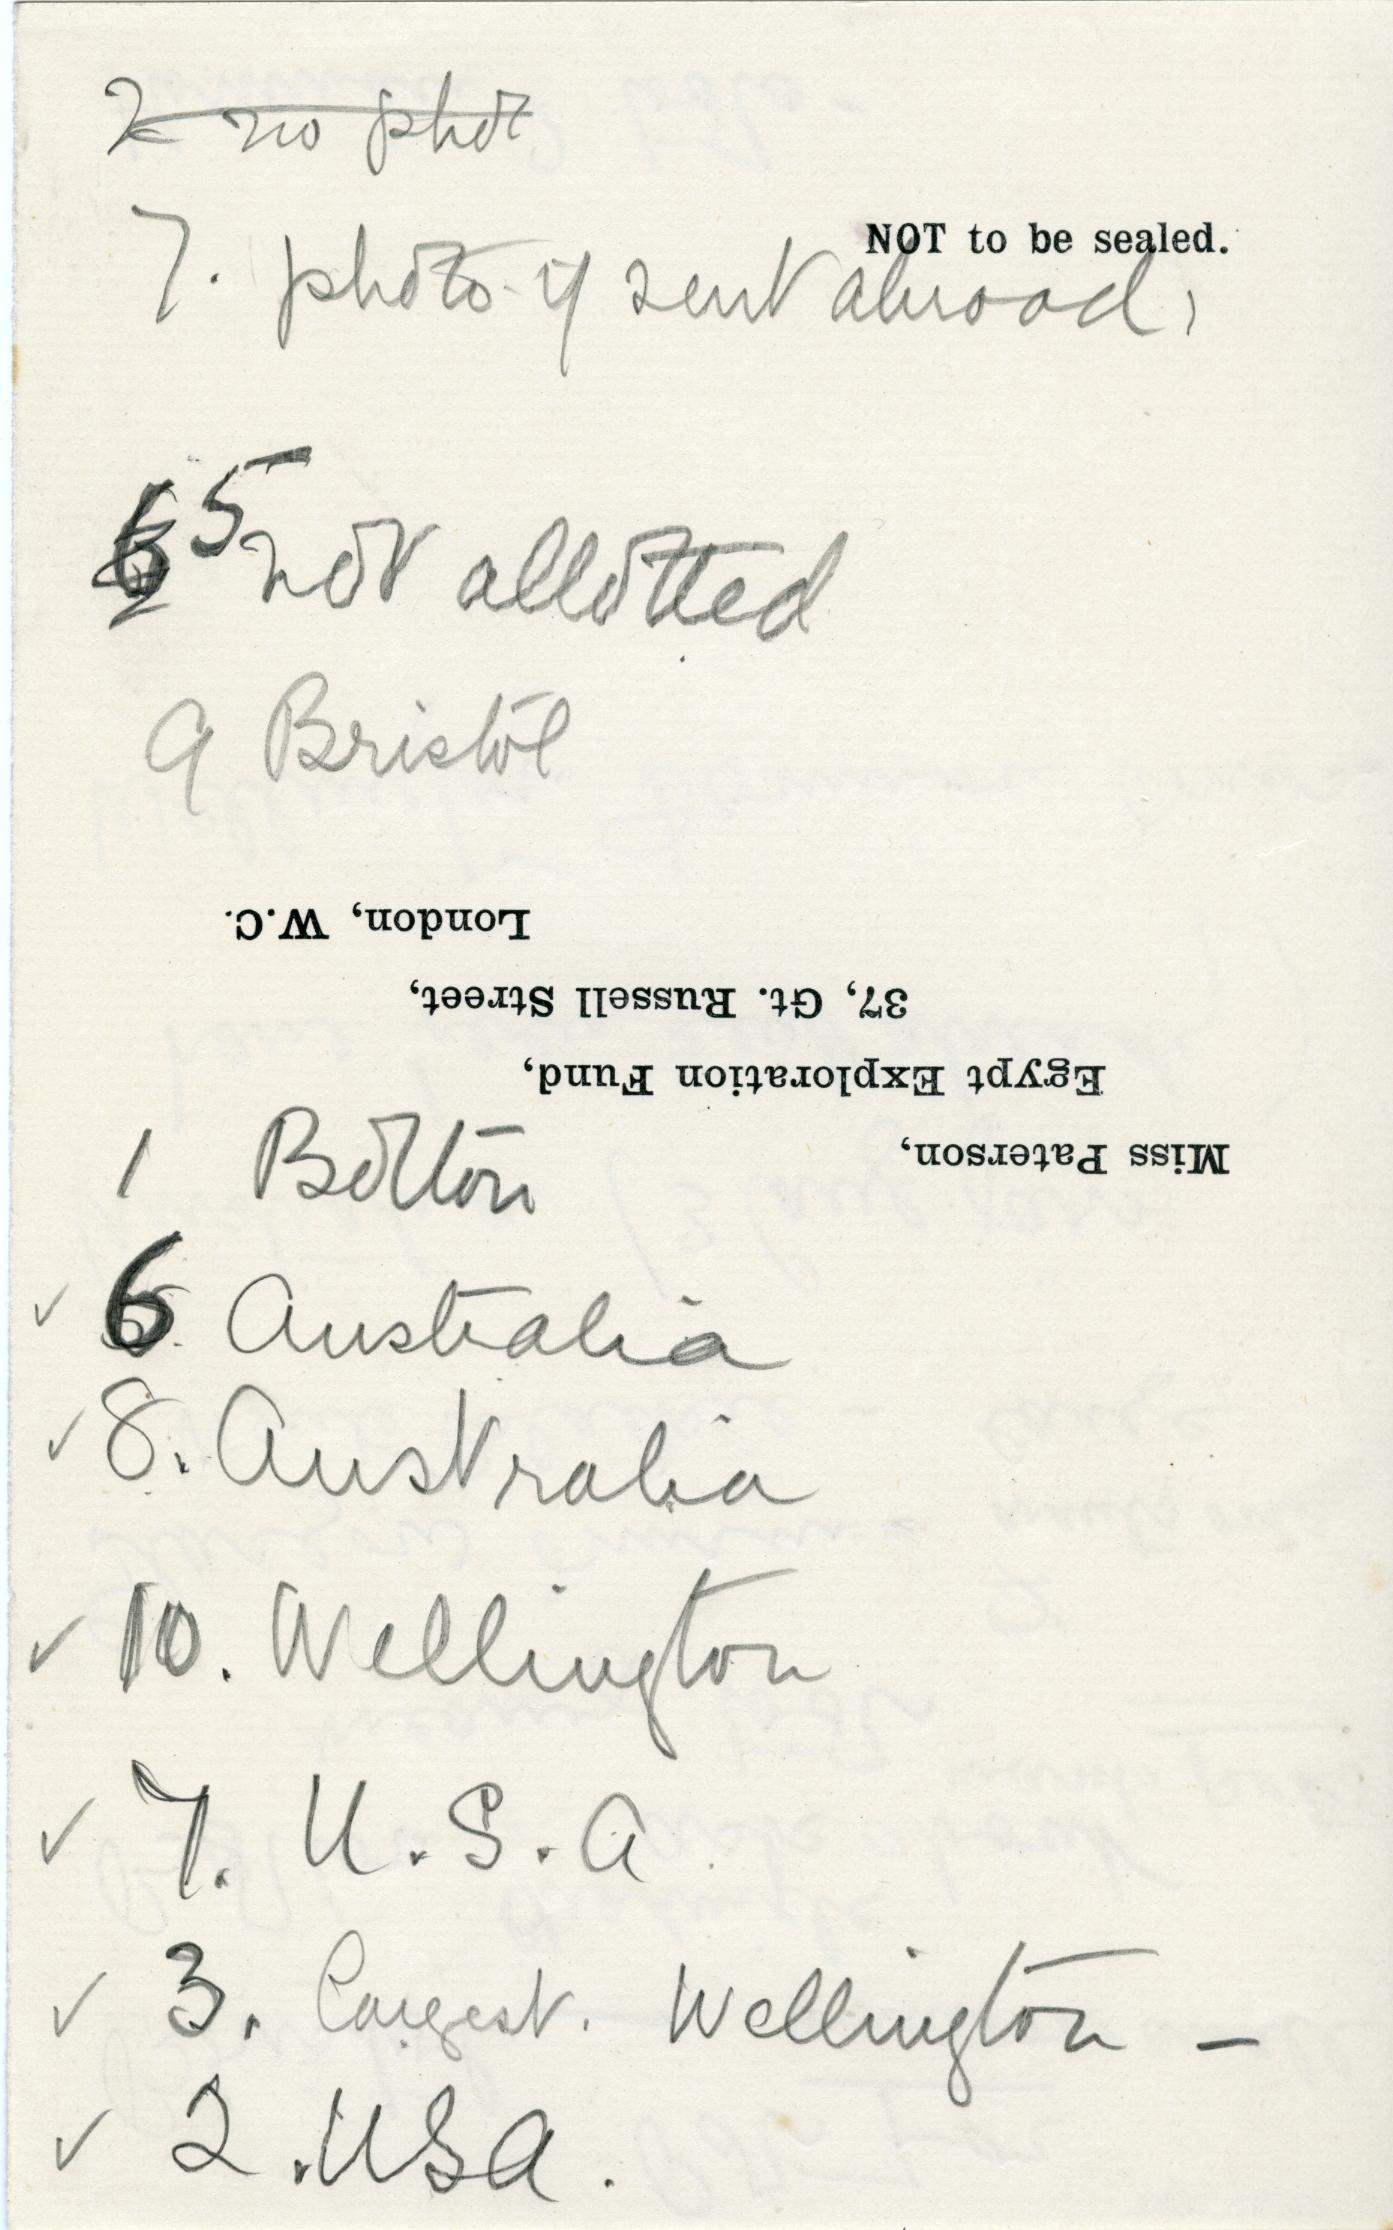 2 no phot
NOT to be sealed.
7. photo if sent abroad,
5 not allotted
9 Bristol
London, W.C.
37, Gt. Russell Street,
Egypt Exploration Fund,
Miss Paterson,
1 Bolton
✓ 6 Australia
✓ 8. Australia
✓ 10. Wellington
✓ 7. U.S.A
✓ 3. Largest. Wellington –
✓ 2. USA.